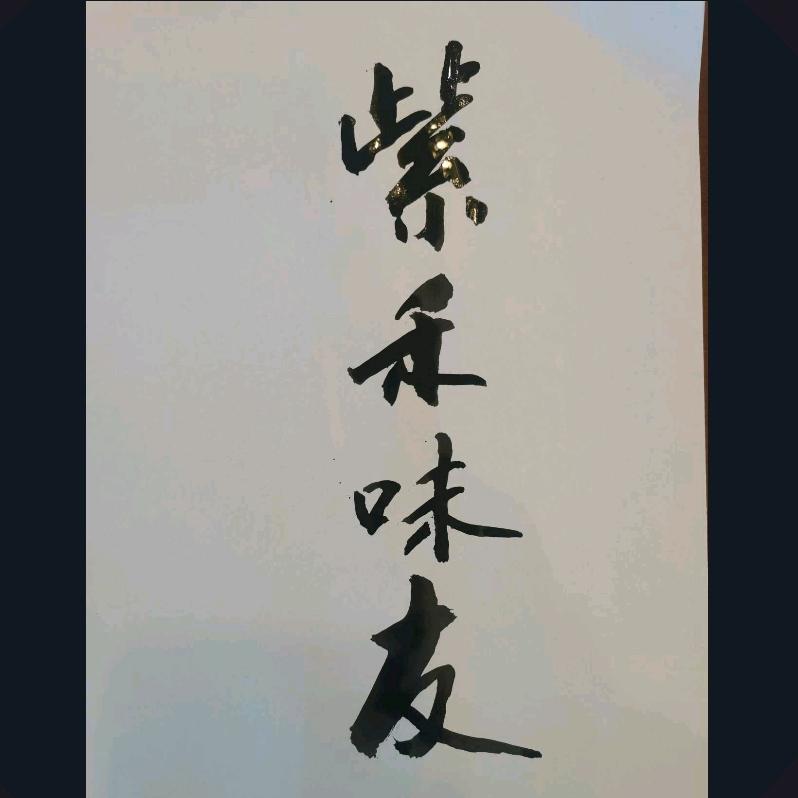 紫禾味友